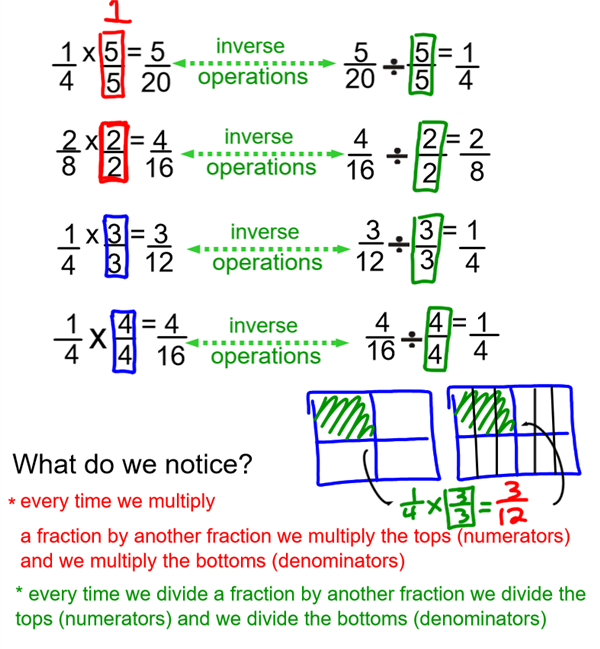 1
1/4 x 5/5 = 5/20 inverse operations 5/20 ÷ 5/5 = 1/4
2/8 x 2/2 = 4/16 inverse operations 4/16 ÷ 2/2 = 2/8
1/4 x 3/3 = 3/12 inverse operations 3/12 ÷ 3/3 = 1/4
1/4 x 4/4 = 4/16 inverse operations 4/16 ÷ 4/4 = 1/4
What do we notice?
1/4 x 3/3 = 3/12
* every time we multiply
a fraction by another fraction we multiply the tops (numerators)
and we multiply the bottoms (denominators)
* every time we divide a fraction by another fraction we divide the
tops (numerators) and we divide the bottoms (denominators)